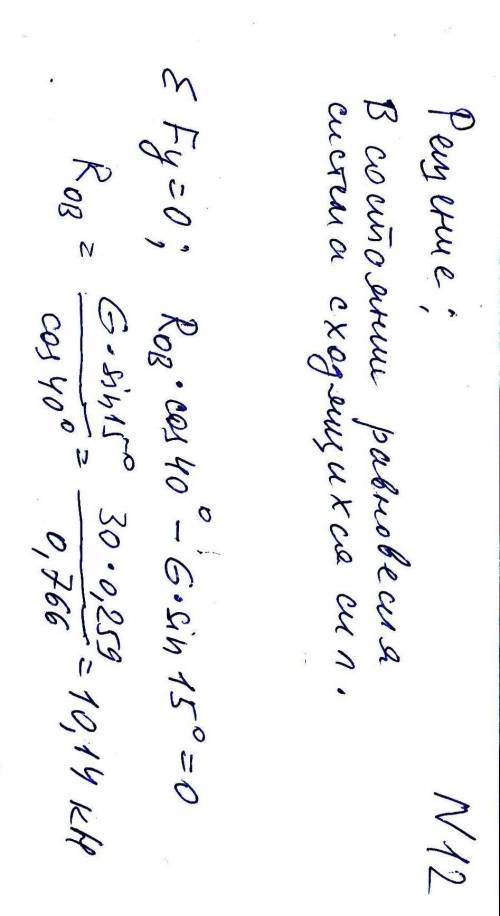 N12
Решение:
В состоянии равновесия
система сходящихся сил.
Σ Fy=0; R_OB·cos40° – G·sin15°=0
R_OB = G·sin15° / cos40° = 30·0,259 / 0,766 = 10,14 кН